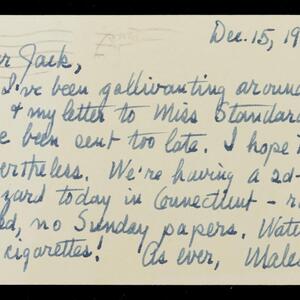 Dec. 15, 19
er Jack,
I've been gallivanting aroun
& my letter to Miss Standar
e been sent too late. I hope
ertheless. We're having a 2d-
zzard today in Connecticut - r
ed, no Sunday papers. Wat
cigarettes! As ever, Malc